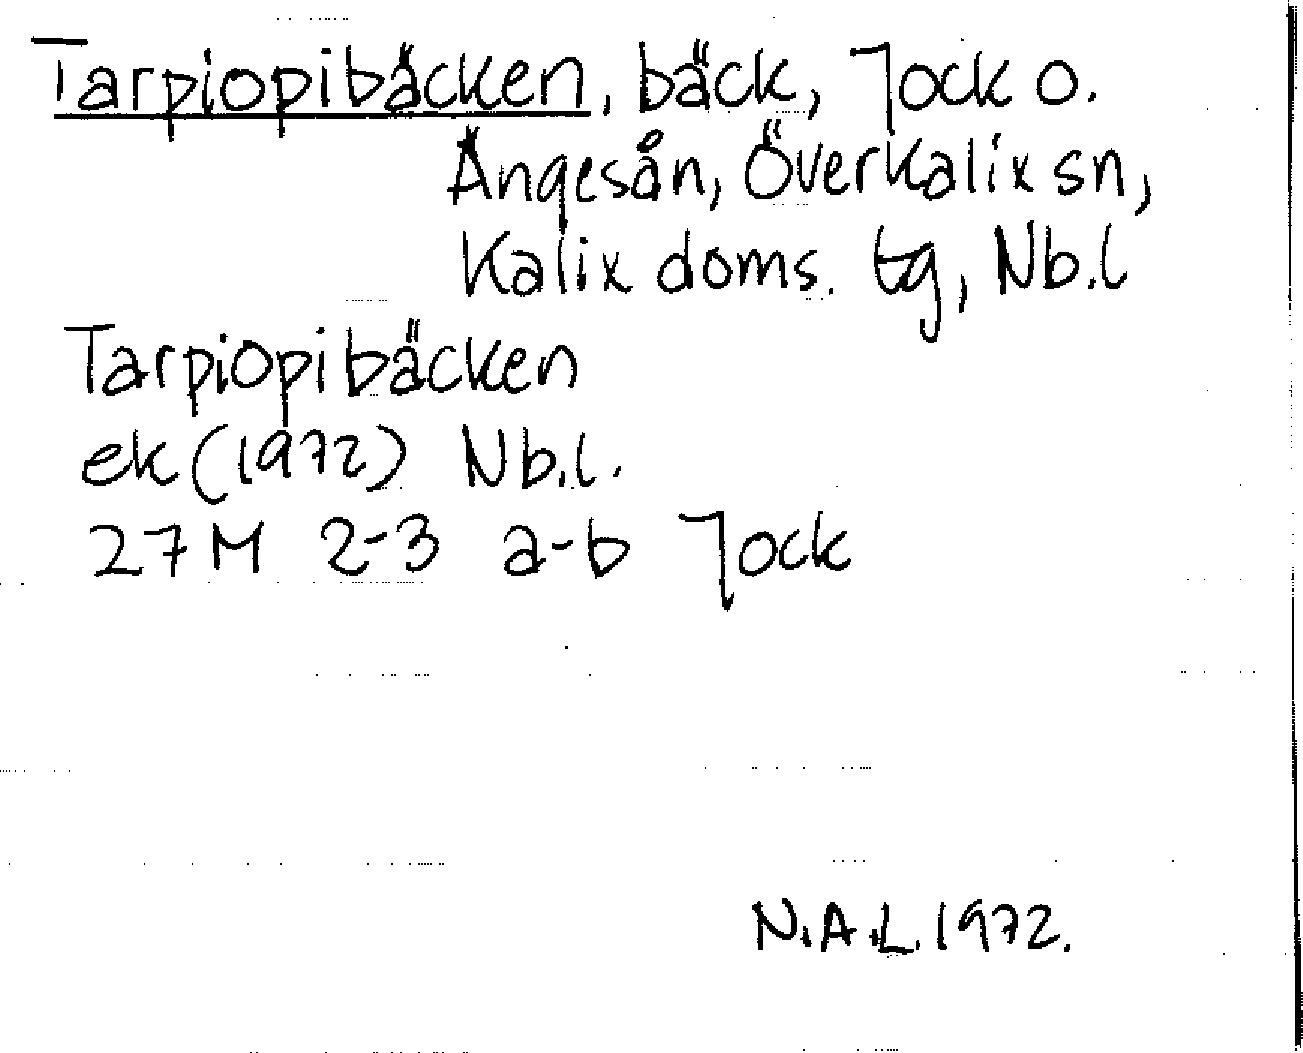 Tarpiopibäcken, bäck, Jock o.
Ängesån, Överkalix sn,
Kalix doms. tg, Nb.l
Tarpiopibäcken
ek (1972) Nb.l.
27M 2-3 a-b Jock
N.A.L. 1972.